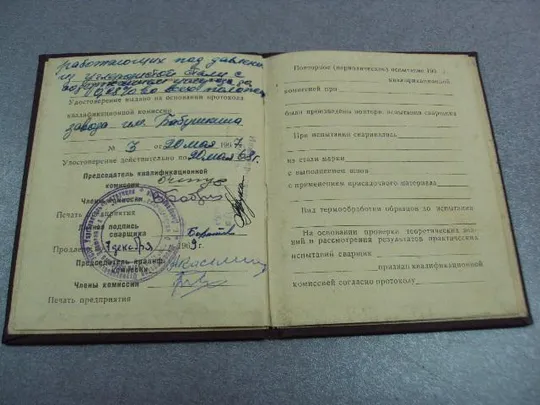 работающих под давлени
ем углеродистой стали с
Удостоверение выдано на основании протокола
квалификационной комиссии
завода им. Бабушкина
№ 3 от 20 мая 1967 г.
Удостоверение действительно по 20 мая 68 г.
Председатель квалификационной
комиссии
Члены комиссии
Печать предприятия
Личная подпись
сварщика
Продлено 1 декабря 1969 г.
Председатель квалиф.
комиссии
Члены комиссии
Печать предприятия
Повторное (периодическое) испытание 196 г.
квалификационной
комиссией при
были произведены повторн. испытания сварщика
При испытании сваривалась
из стали марки
с выполнением швов
с применением присадочного материала
Вид термообработки образцов до испытания
На основании проверки теоретических зна-
ний и рассмотрения результатов практических
испытаний сварщик
признан квалификационной
комиссией согласно протоколу